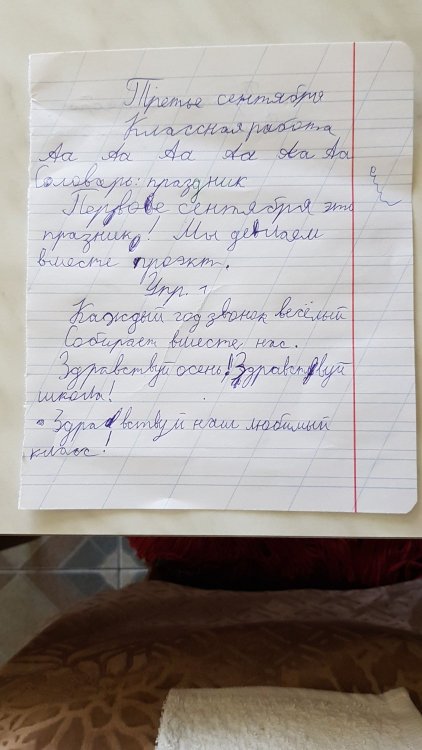 Третье сентября
Классная работа
Аа Аа Аа Аа Аа Аа
Словарь: праздник
Первое сентября это
празник! Мы делаем
вместе проэкт.
Упр. 1
Каждый год звонок весёлый
Собирает вместе нас.
Здравствуй осень! Здравствуй
школа!
- Здравствуй наш любимый
класс!